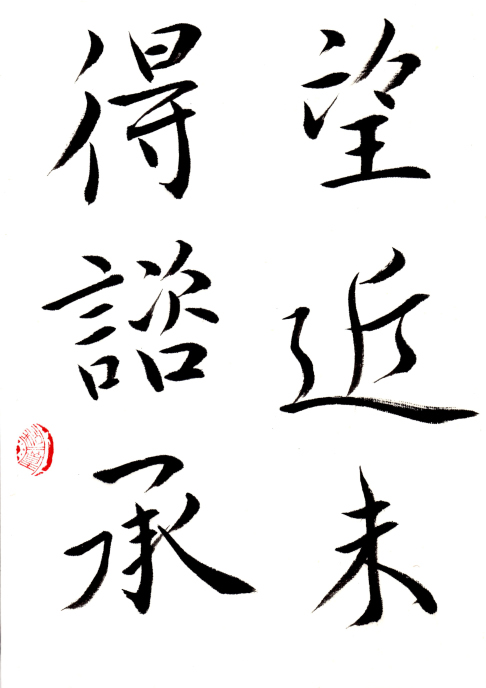 望近未
得諮承